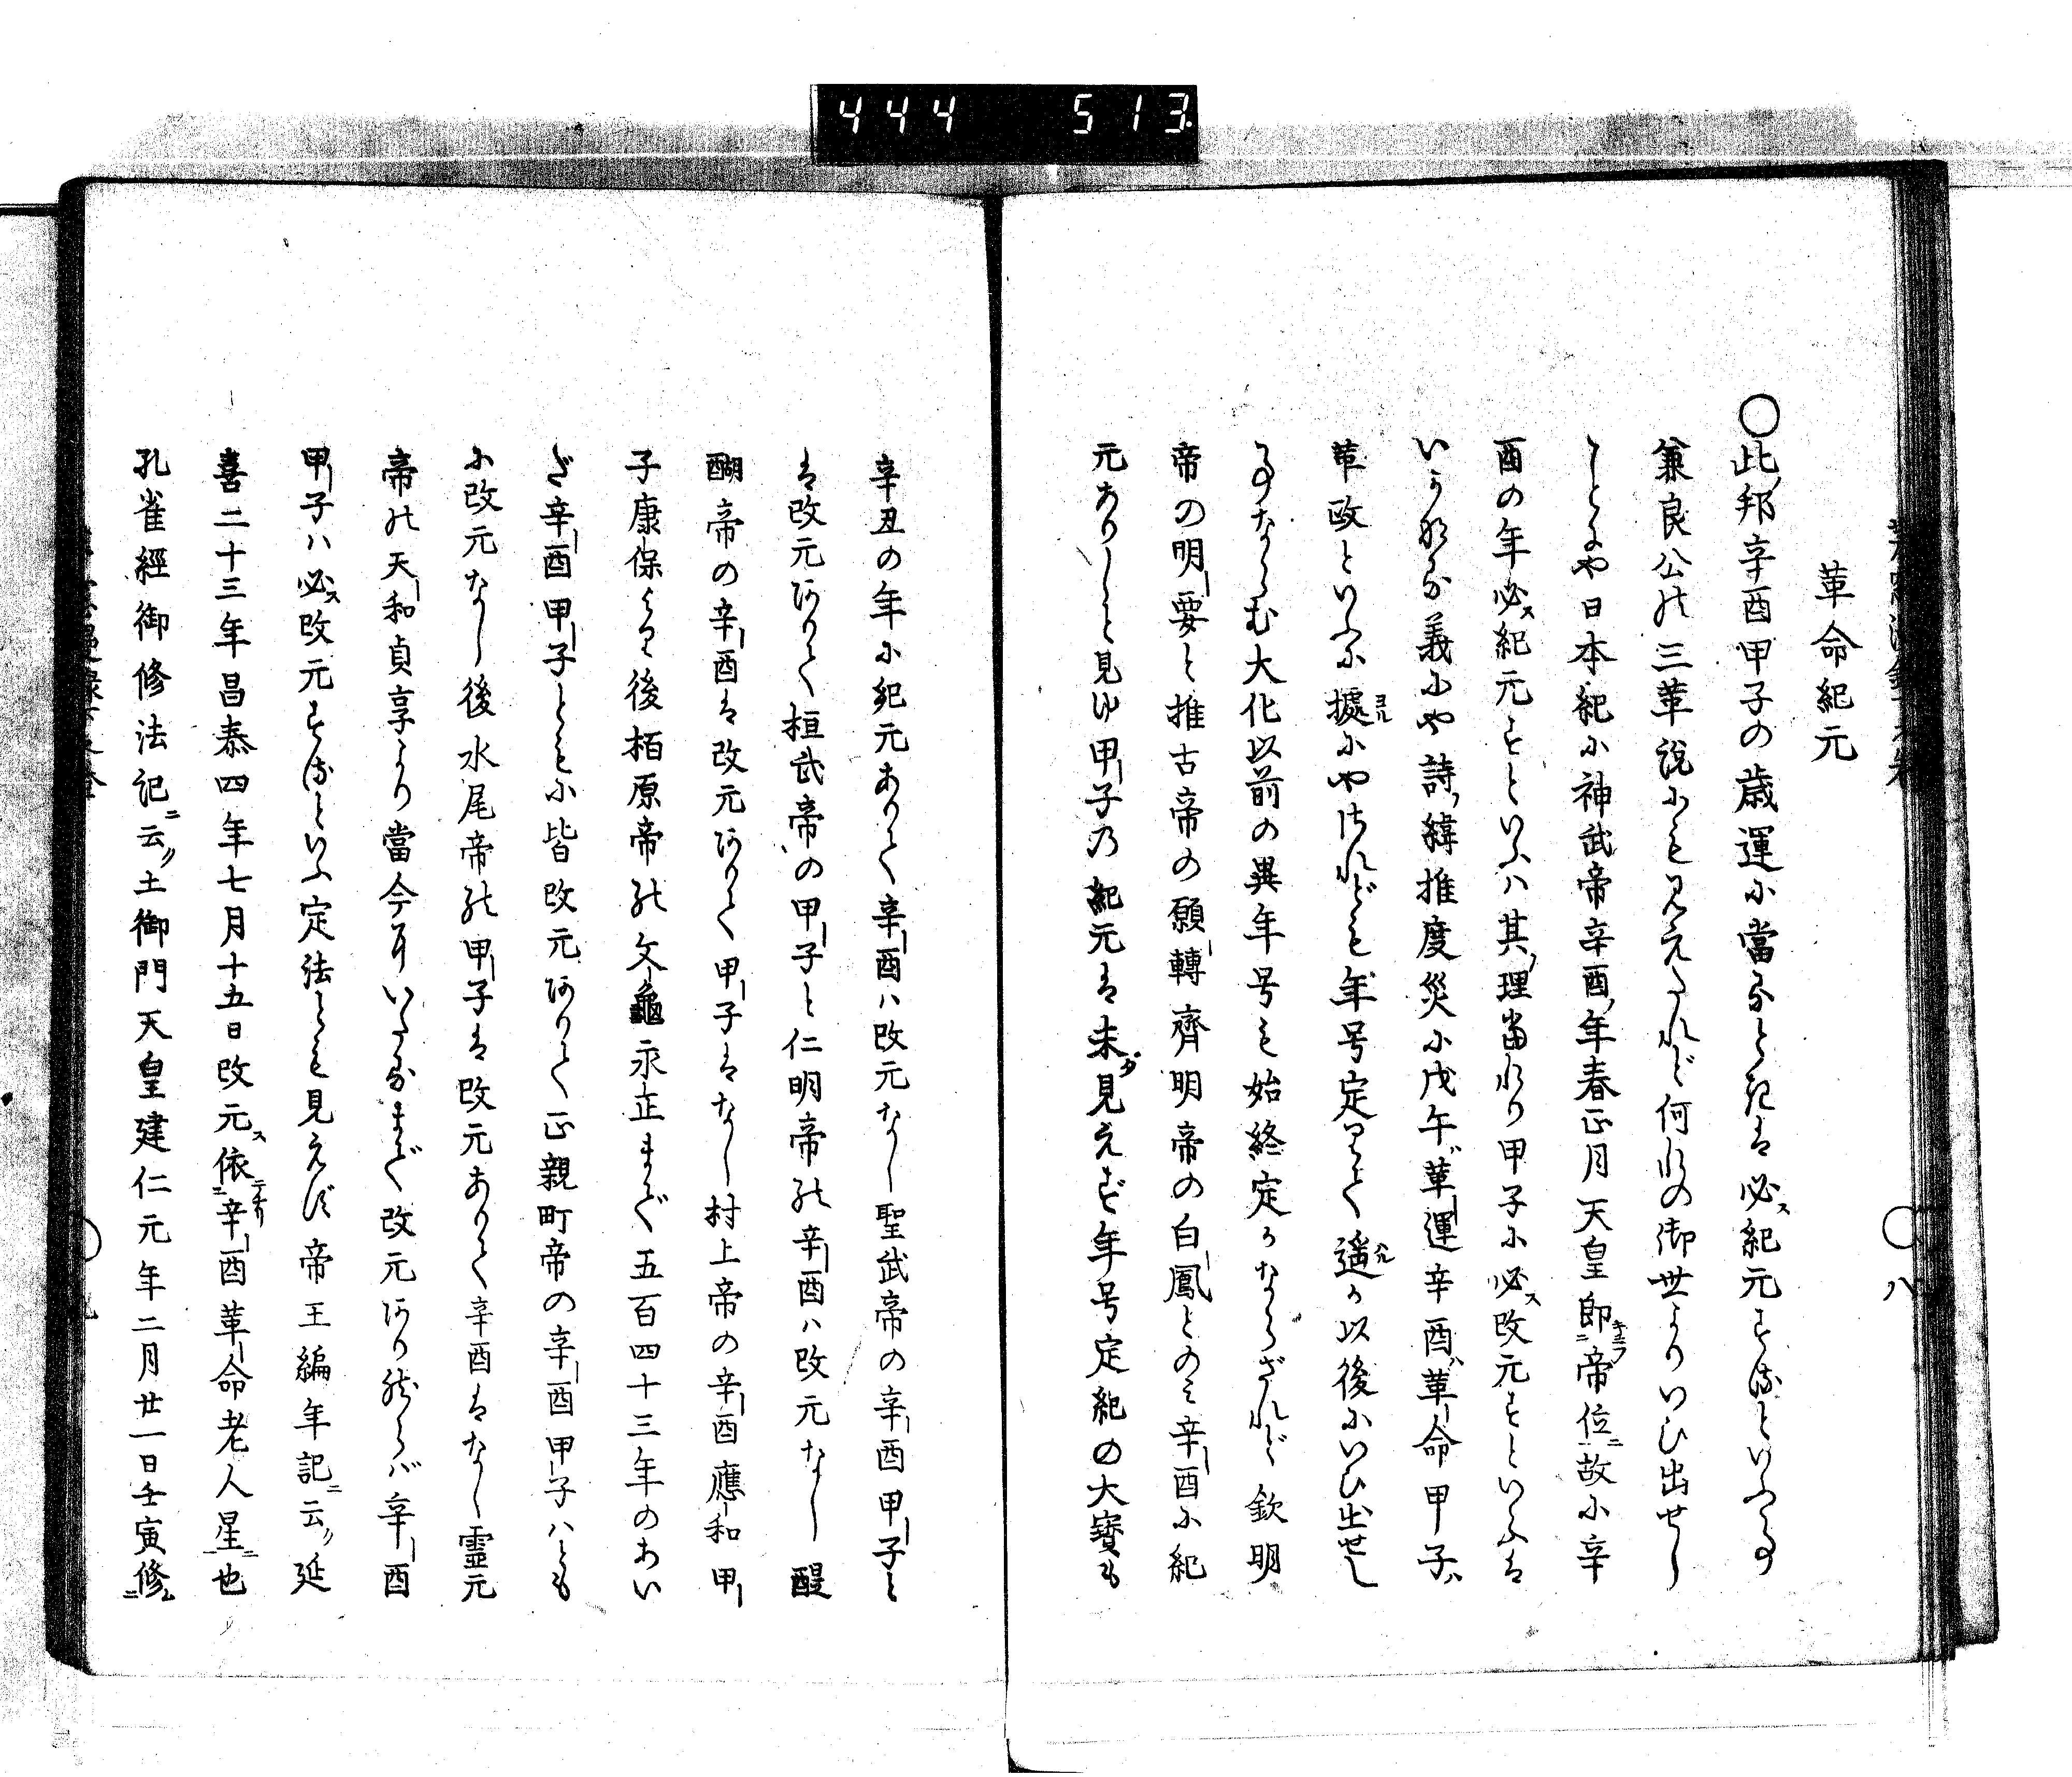 444 513
革命紀元
○此邦辛酉甲子の歳運に當るときは必ス紀元するといふ事
兼良公の三革説にも見えたれど何れの御世よりいひ出せし
ことにや日本紀に神武帝辛酉ノ年春正月天皇即ニ帝位ニ故に辛
酉の年必ス紀元すといふハ其ノ理當れり甲子に必ス改元すといふは
いかなる義にや詩ノ緯推度災に戊午ハ革運辛酉ハ革命甲子ハ
革政といふに據にやされども年号定りて遙か以後にいひ出せし
事ならむ大化以前の異年号も始終定かならざれど欽明
帝の明要と推古帝の願轉齊明帝の白鳳とのみ辛酉に紀
元ありしと見ゆ甲子乃紀元は未ダ見えず年号定紀の大寳も
辛丑の年に紀元ありて辛酉ハ改元なし聖武帝の辛酉甲子と
は改元ありて桓武帝の甲子と仁明帝の辛酉ハ改元なし醍
醐帝の辛酉は改元ありて甲子はなし村上帝の辛酉應和甲
子康保より後柏原帝の文龜永正まで五百四十三年のあい
だ辛酉甲子ともに皆改元ありて正親町帝の辛酉甲子ハとも
に改元なし後水尾帝の甲子は改元ありて辛酉はなし靈元
帝の天和貞享より當今にいたるまで改元あり然らバ辛酉
甲子ハ必ス改元するといふ定法とも見えず帝王編年記ニ云ク延
喜二十三年昌泰四年七月十五日改元ス依ニ辛酉革命老人星ニ也
孔雀經御修法記ニ云ク土御門天皇建仁元年二月廿一日壬寅修ニ
八